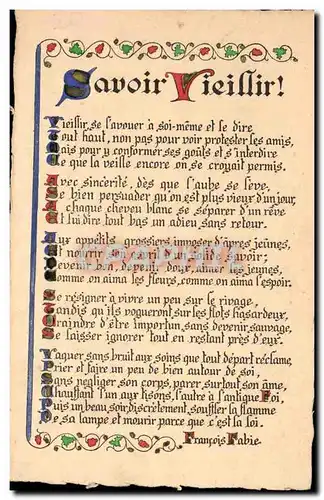 Savoir Vieillir!
Vieillir, se l'avouer à soi-même et le dire
Tout haut, non pas pour voir protester les amis,
Mais pour y conformer ses goûts et s'interdire
Ce que la veille encore on se croyait permis.
Avec sincérité, dès que l'aube se lève,
Se bien persuader qu'on est plus vieux d'un jour,
A chaque cheveu blanc se séparer d'un rêve
Et lui dire tout bas un adieu sans retour.
Aux appétits grossiers, imposer d'âpres jeûnes,
Et nourrir son esprit d'un solide savoir;
Devenir bon, devenir doux, aimer les jeunes,
Comme on aima les fleurs, comme on aima l'espoir.
Se résigner à vivre un peu sur le rivage,
Tandis qu'ils vogueront sur les flots hasardeux,
Craindre d'être importun, sans devenir sauvage,
Se laisser ignorer tout en restant près d'eux.
Vaquer sans bruit aux soins que tout départ réclame,
Prier et faire un peu de bien autour de soi,
Sans négliger son corps, parer surtout son âme,
Chauffant l'un aux tisons, l'autre à l'antique Foi,
Puis un beau soir, discrètement, souffler la flamme
De sa lampe et mourir parce que c'est la loi.
François Fabie.